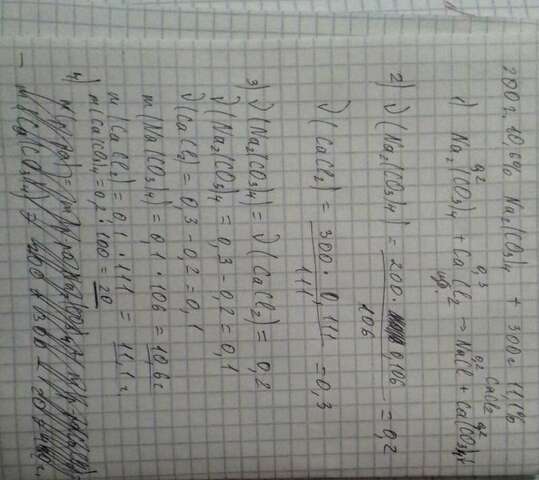 200г. 10,6% Na₂(CO₃)₄ + 300г 11,1% CaCl₂
0,2 0,3 0,2 0,2
1) Na₂(CO₃)₄ + CaCl₂ → NaCl + Ca(CO₃)₄
изб.
2) ν(Na₂(CO₃)₄) = 200 · 0,106 / 106 = 0,2
ν(CaCl₂) = 300 · 0,111 / 111 = 0,3
3) ν(Na₂(CO₃)₄) = ν(CaCl₂) = 0,2
ν(Na₂(CO₃)₄ = 0,3 - 0,2 = 0,1
ν(CaCl₂) = 0,3 - 0,2 = 0,1
m(Na(CO₃)₄) = 0,1 · 106 = 10,6г
m(CaCl₂) = 0,1 · 111 = 11,1г.
4) m(Ca(CO₃)₄ = 0,2 · 100 = 20